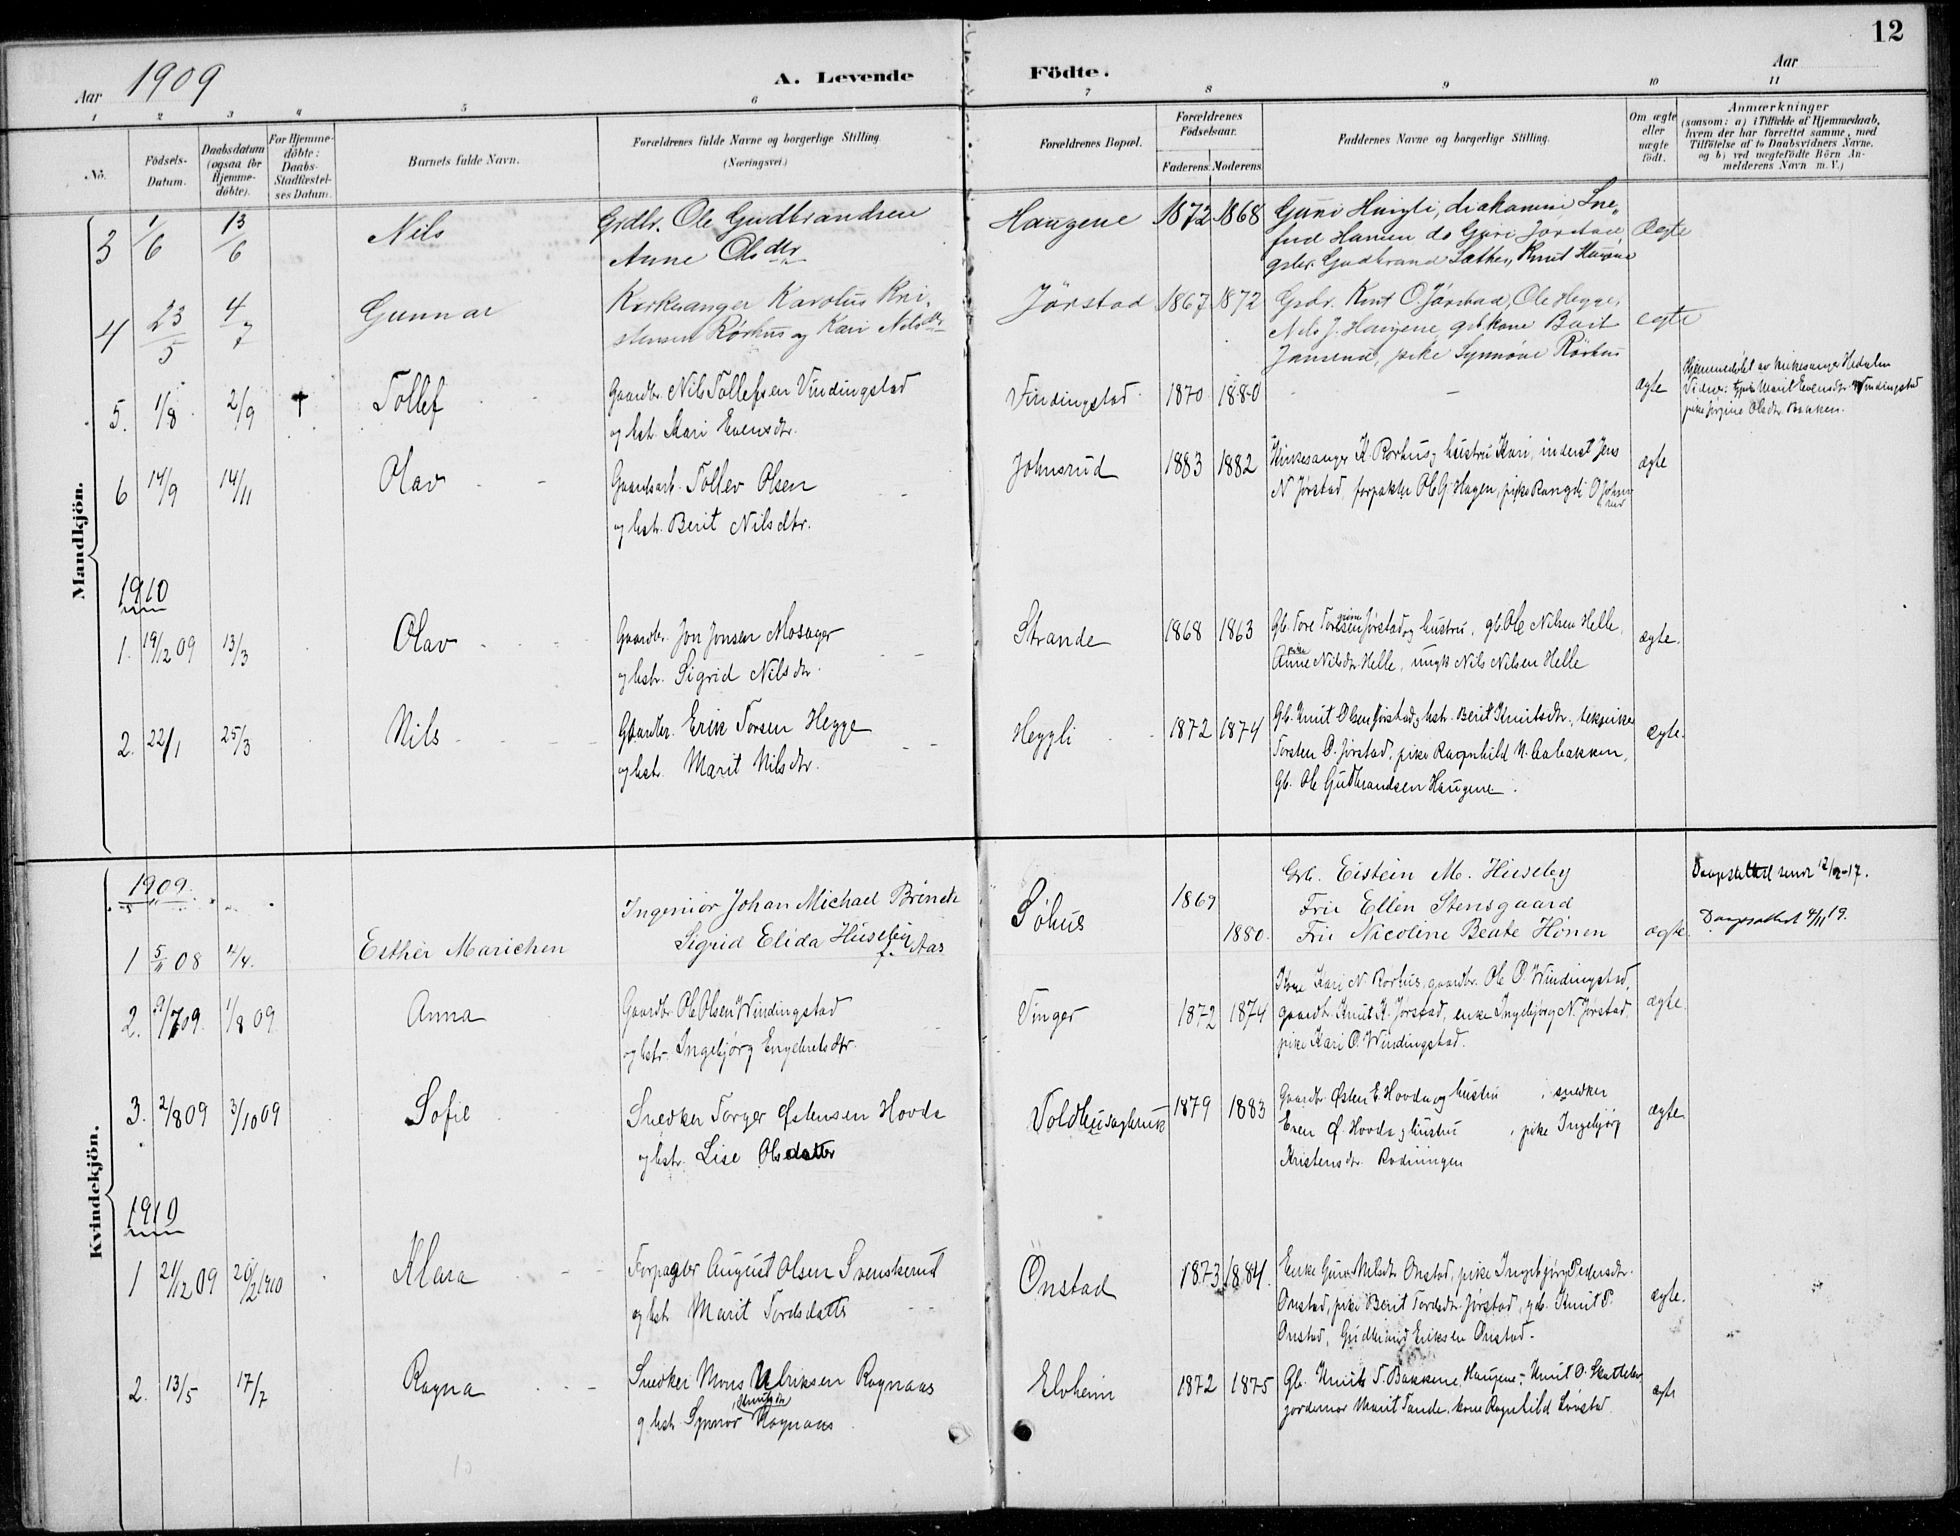 12
Aar 1909
A. Levende Födte.
Aar
1 2 3 4 5 6 7 8 9 10 11
No.
Födsels-Datum.
Daabsdatum (ogsaa for Hjemme-döbte).
For Hjemme-döbte: Daabs-Stadfæstel-ses Datum.
Barnets fulde Navn.
Forældrenes fulde Navne og borgerlige Stilling. (Næringsvei.)
Forældrenes Bopæl.
Forældrenes Födselsaar.
Faderens. Moderens.
Faddernes Navne og borgerlige Stilling.
Om ægte eller uægte födt.
Anmærkninger
(saasom: a) i Tilfælde af Hjemmedaab,
hvem der har forrettet samme, med
Tilföielse af to Daabsvidners Navne,
og b) ved uægtefödte Börn An-
melderens Navn m. V.)
Mandkjön.
3 1/6 13/6 Nils Grdbr. Ole Gudbrandsen Haugene 1872 1868
Anne Olsdtr Ægte
4 23/5 4/7 Gunnar Kirkesanger Karolus Kri- Jørstad 1867 1872 Grdbr. Knut O. Jørstad, Ole Hegge,
stensen Rørhus og Kari Nilsdtr Nels J. Haugene gbkone Berit ægte
Jonsend, pike Synnøve Rørhus
5. 1/8 2/9 † Tollef Gaardbr. Nils Tollefsen Vindingstad Vindingstad 1870 1880 - - ægte Hjemmedøbt av kirkesanger Hedalen
og hst. Kari Evensdtr. Vidner: Marit Evensdtr Windingstad
pike Jørgine Olsdtr Bakken.
6 14/9 14/11 Olav Gaardsarb. Tollev Olsen Johnsrud 1883 1882 Kirkesanger K. Rørhus og hustru Kari, inderst Jens ægte
og hst. Berit Nilsdtr. N Jørstad, forpakter Ole G. Hagen, pike Rangdi O Johnsrud
1910
1. 19/12 09 13/3 Olav Gaardbr. Jon Jonsen Mosager Strande 1868 1863 Gb. Tore Jørstad og hustru, gb. Ole Nilsen Helle ægte.
og hst. Sigrid Nilsdtr. Anne Nilsdtr. Helle, ungk Nils Nilsen Helle
2. 22/1 25/3 Nils Gaardbr. Erik Torsen Hegge Heggli 1872 1874 Gb. Knut Olsen Jørstad og hst. Berit Knutsdtr., ægte.
og hst. Marit Nilsdtr. Torsten O. Jørstad, pike Ragnhild N.
Gb. Ole Gudbrandsen Haugene.
Kvindekjön.
1909
1 5/11 08 4/4. Esther Marichen Ingeniør Johan Michael Brinck Søhus 1869 1880. Grb. Eistein M. Huseby
Sigrid Elida Huseby f. Aas Fru Ellen Stensgaard
Fru Nicoline Beate Hønen ægte
Daapsattest sendt 12/12-17.
Daapsattest 4/11 19.
2. 1/8 09. Anna Gaardbr Ole Olsen Windingstad Vinger 1872 1874 Kone Kari N. Rørhus, gaardbr. Ole O. Windingstad, ægte
og hst. Ingebjørg Engebretsdtr. gaardbr. Knut K. Jørstad, enke Ingebjørg N. Jørstad,
pike Kari O. Windingstad.
3. 2/8 09 3/10 09 Sofie Snedker Torger Østensen Hovde Voldheusagbruk 1879 1883 Gaardbr Østen E. Hovde og hustru , snedker ægte
og hst. Lise Olsdatter Even Ø. Hovde og hustru , pike Ingebjørg
Kristensdtr. Rødningen
1910
1 21/12 09 20/2 1910 Klara Forpagter August Olsen Svenskerud Onstad 1873 1884. Enke Guri Nilsdtr Onstad, pike Ingebjørg Pedersdtr. ægte.
og hst. Marit Tordsdatter Onstad, pike Berit Tordsdtr. Jørstad, gb. Knut P.
Onstad, Gudbrand Eriksen Onstad.
2. 13/5 17/7 Ragna Snedker Mons Ulriksen Rognaas Elvheim 1872 1875 Gb. Knut T. Bakkene, Haugene, Knut O. ægte
og hst. Synnør Rognaas jordemor Marit Tande, kone Ragnhild Lørstad.